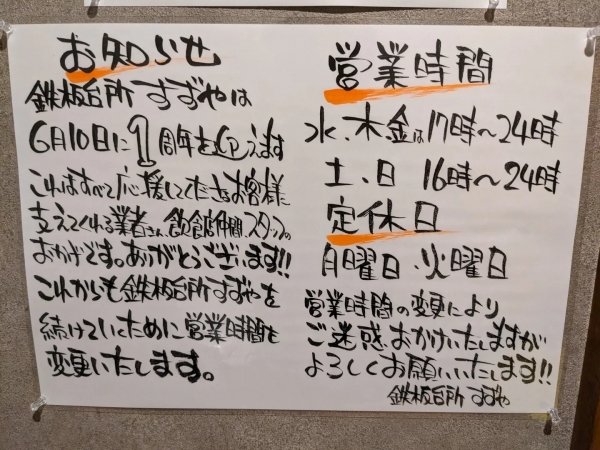 お知らせ
鉄板台所すずやは
6月10日に1周年を迎えます
これはすべて応援してくださるお客様に
支えてくれる業者さん、飲食店仲間、スタッフの
おかげです。ありがとうございます!!
これからも鉄板台所すずやを
続けていくために営業時間を
変更いたします。
営業時間
水、木、金は17時〜24時
土、日 16時〜24時
定休日
月曜日・火曜日
営業時間の変更により
ご迷惑おかけいたしますが
よろしくお願いいたします!!
鉄板台所すずや